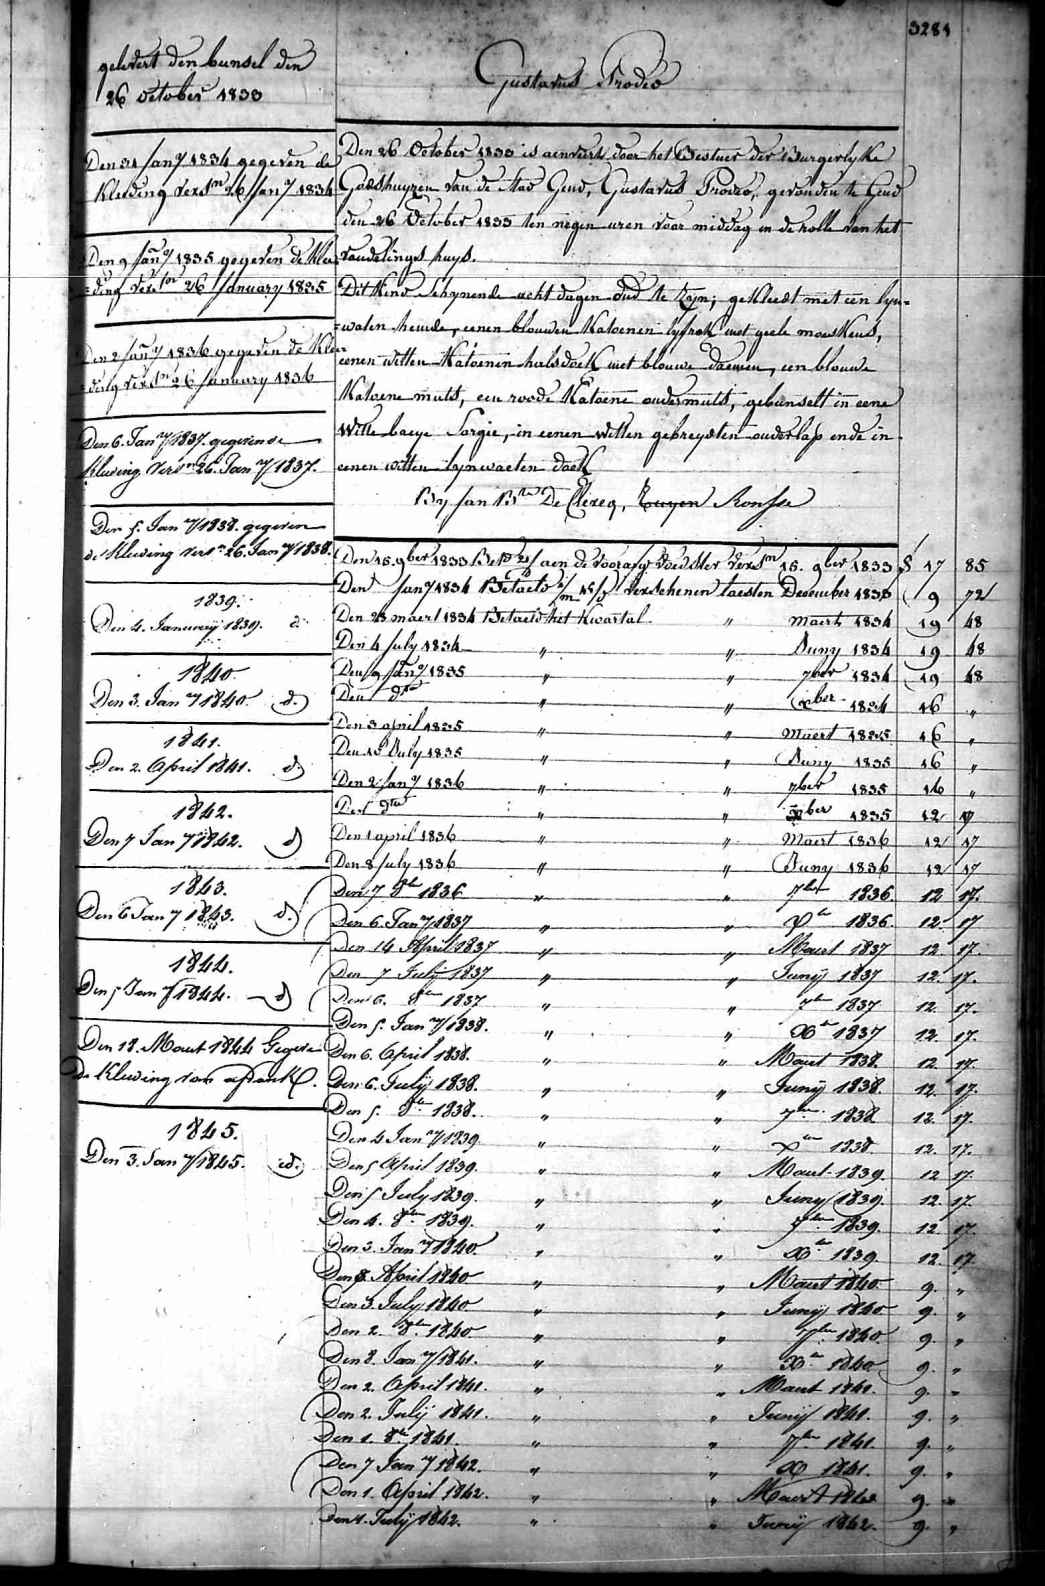 3284
gelevert den bunsel den
26 october 1833
Gustavus Prodeo
Den 31 Jany 1834 gegeven de
Kleeding versn 26 Jany 1834
Den 9 Jany 1835 gegeven de Klee
=ding versn 26 January 1835
Den 2 Jany 1836 gegeven de Klee
=ding versn 26 January 1836
Den 6. Jany 1837. gegeven de
kleeding versn 26. Jany 1837.
Den 5. Jany 1838. gegeven
de kleeding versn 26. Jany 1838.
1839.
Den 4. January 1839. d.
1840.
Den 3. Jany 1840. d.
1841.
Den 2. April 1841. d.
1842.
Den 7 Jany 1842. d
1843.
Den 6 Jany 1843. d.
1844.
Den 5 Jany 1844. d
Den 18. Maart 1844 Gegeven
de Kleeding van
1845.
Den 3. Jany 1845. id.
Den 26 October 1833 is aenveert door het Bestuer der Burgerlyke
Godshuyzen van de Stad Gend, Gustavus Prodeo, gevonden te Gend
den 26 October 1833 ten negen uren voor middag in de rolle van het
vondelings huys.
Dit Kind schynende acht dagen oud te zyn; gekleedt met een lyn=
=waten hemde, eenen blouwen Katoenen lyfrok met geele mouskens,
eenen witten Katoenen halsdoek met blouwe daemen, een blouwe
Katoene muts, een roode Katoene ondermuts, gebunselt in eene
witte baeye Sargie, in eenen witten gebreyden onderlap ende in
eenen witten lynwaeten doek
By Jan Bte De Clercq, Ronsse
Den 15. 9ber 1833 Bet aen de voorzeg voedster versn 16. 9ber 1833 17 85
Den Jany 1834 Betaeld verschenen laesten December 1833 9 72
Den 28 maert 1834 Betaeld het Kwartal " maert 1834 19 48
Den 4 July 1834 " " Juny 1834 19 48
Den 9 Jany 1835 " " 7ber 1834 19 48
Den dto " " xber 1834 16 "
Den 3 april 1835 " " Maert 1835 16 "
Den 10 July 1835 " " Juny 1835 16 "
Den 2 Jany 1836 " " 7ber 1835 16 "
Den dto " " xber 1835 12 17
Den 1 april 1836 " " Maert 1836 12 17
Den 8 July 1836 " " Juny 1836 12 17
Den 7 8be 1836 " " 7ber 1836 12 17.
Den 6. Jany 1837 " " Xbe 1836. 12. 17
Den 14 April 1837 " " Maert 1837 12. 17.
Den 7 July 1837 " " Juny 1837 12. 17.
Den 6. 8be 1837 " " 7be 1837 12. 17.
Den 5. Jany 1838. " " Xbe 1837 12. 17.
Den 6. April 1838. " " Maert 1838. 12. 17.
Den 6. July 1838. " " Juny 1838. 12. 17.
Den 5. 8be 1838. " " 7be 1838 12. 17.
Den 4 Jany 1839. " " Xbe 1838. 12. 17.
Den 5 April 1839. " " Maert 1839. 12 17.
Den 5 July 1839. " " Juny 1839. 12. 17.
Den 4. 8be 1839. " " 7be 1839. 12. 17.
Den 3. Jany 1840. " " Xbe 1839 12. 17
Den 3. April 1840 " " Maert 1840. 9. "
Den 3. July 1840 " " Juny 1840 9. "
Den 2. 8be 1840 " " 7be 1840. 9. "
Den 8. Jany 1841. " " Xbe 1840 9. "
Den 2. April 1841. " " Maert 1841. 9. "
Den 2. July 1841. " " Juny 1841. 9. "
Den 1. 8be 1841. " " 7be 1841. 9. "
Den 7 Jany 1842. " " X 1841. 9. "
Den 1. April 1842. " " Maert 1842 9. "
Den 1. July 1842. " " Juny 1842. 9. "